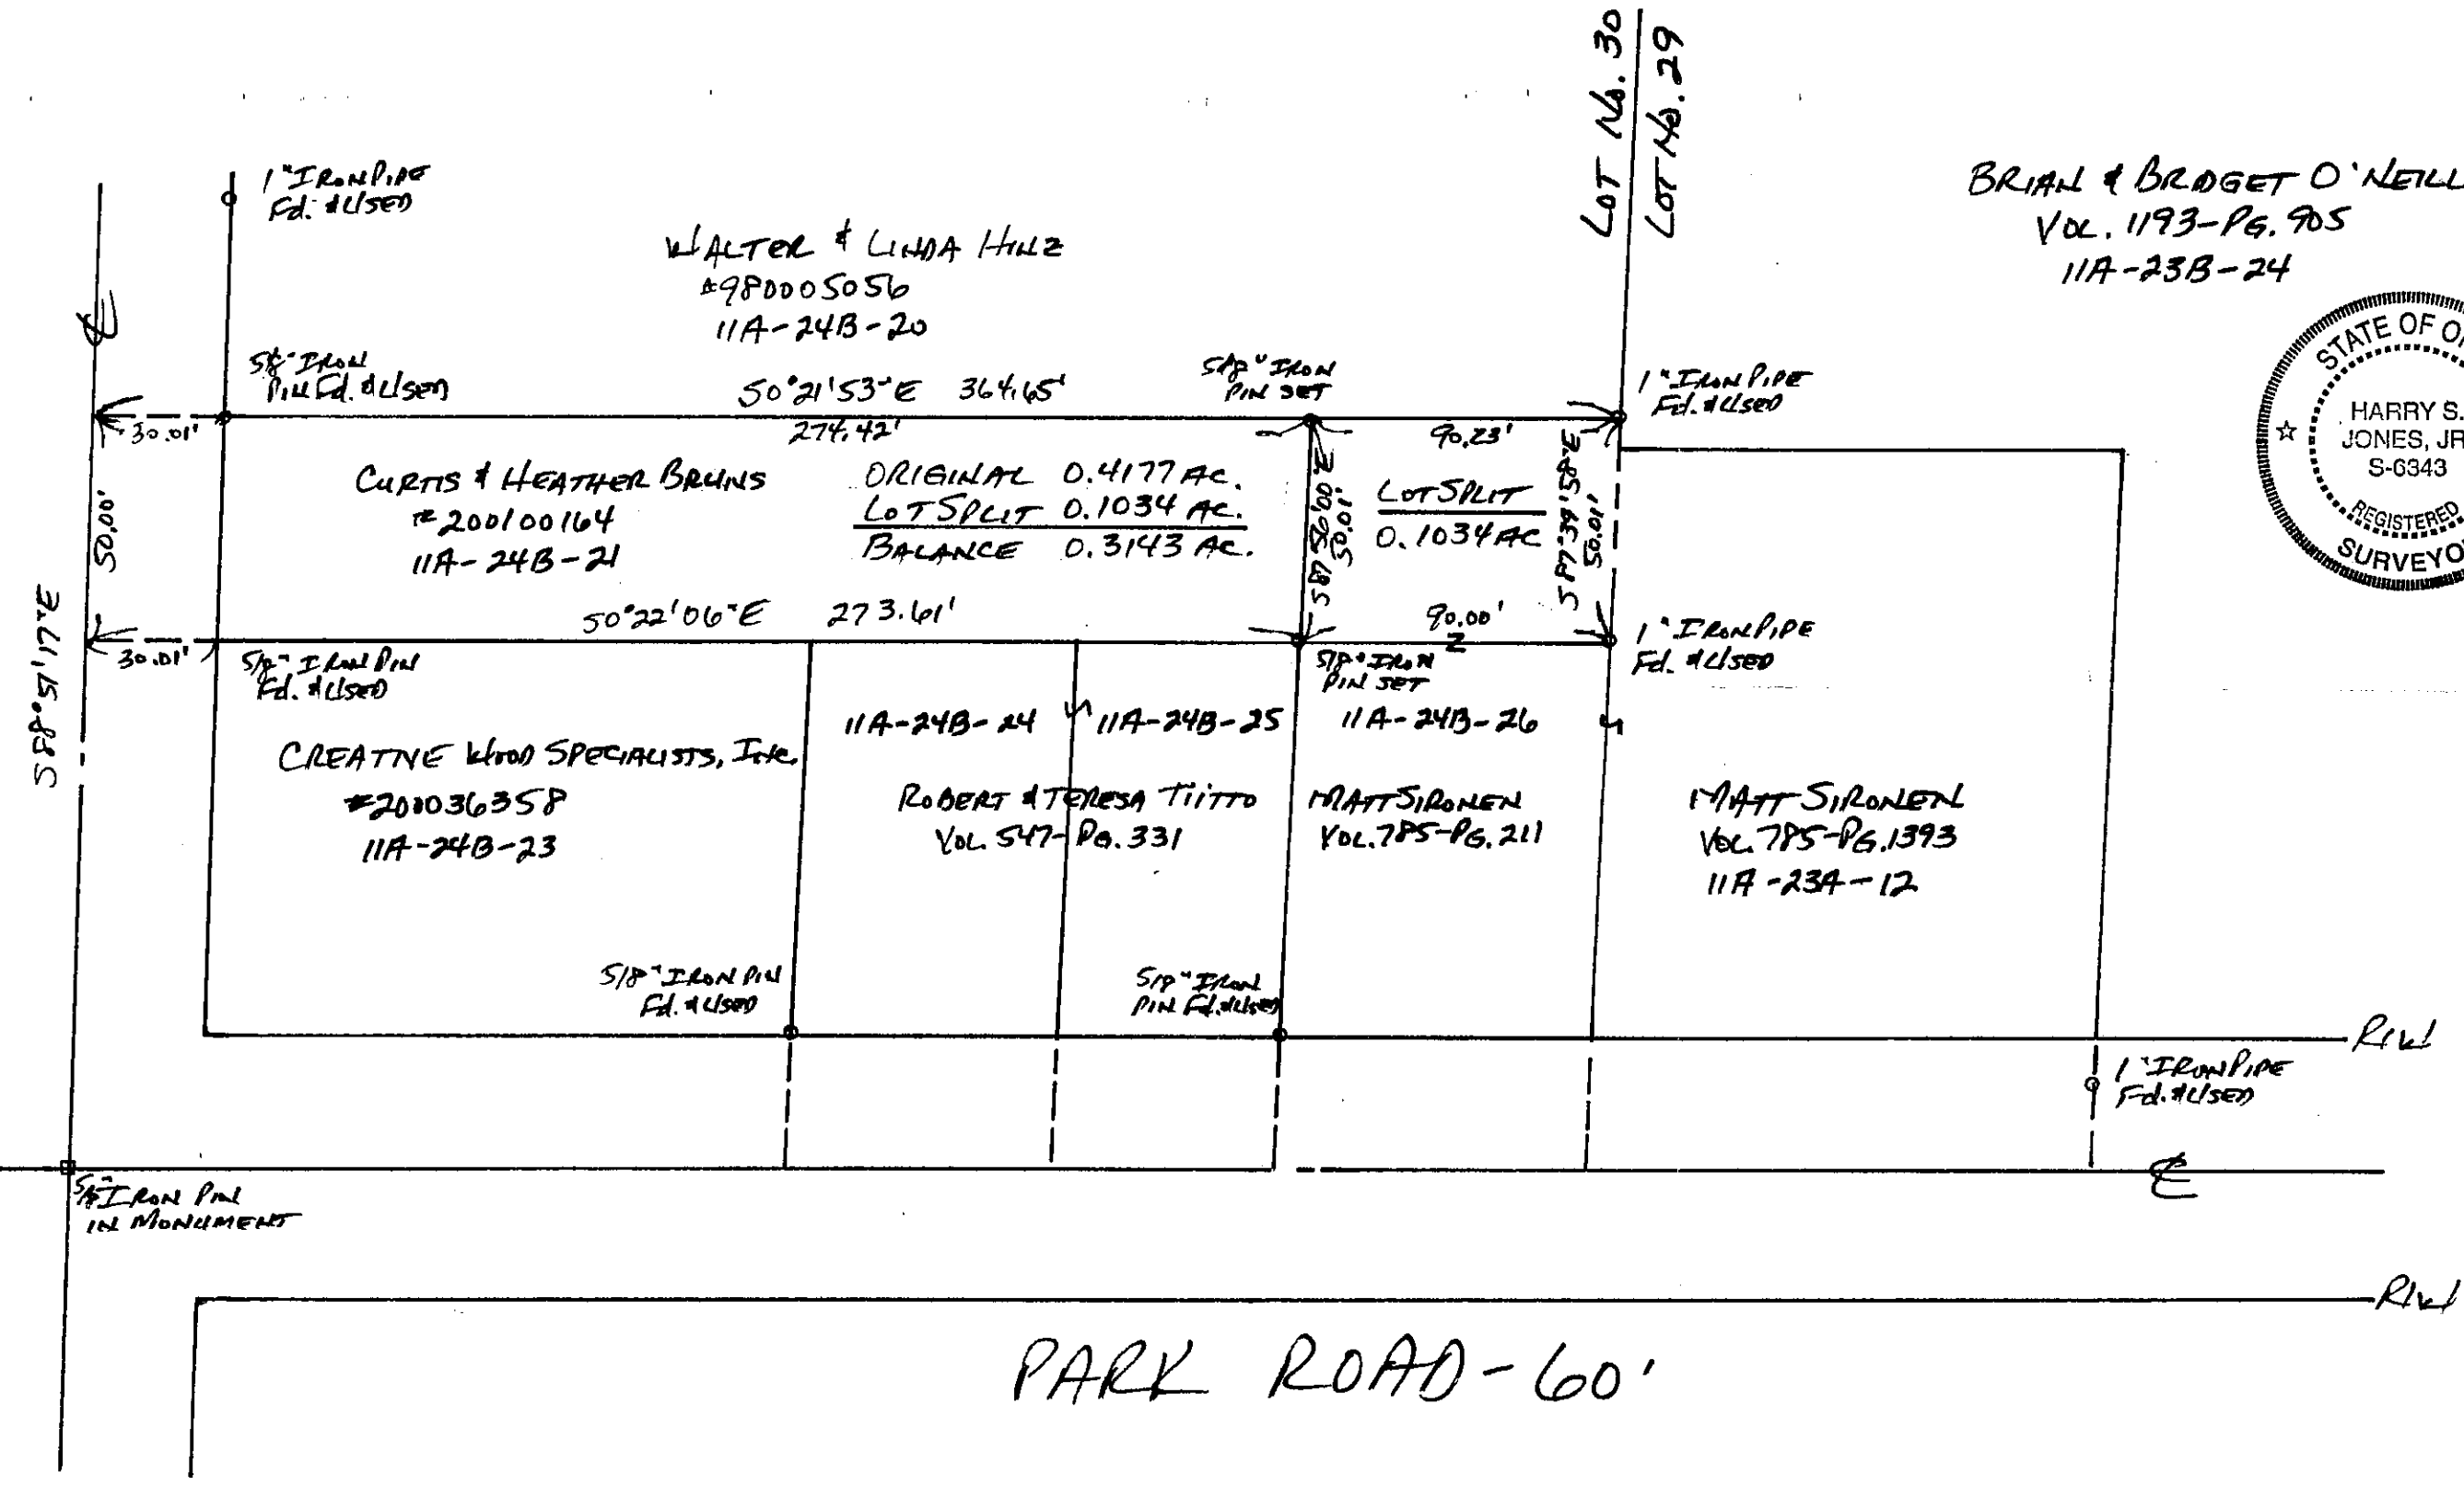 LOT No. 30
LOT No. 29
BRIAN & BRIDGET O'NEILL
VOL. 1193-PG. 905
11A-23B-24
1" IRON PIPE
Fd. & USED
WALTER & LINDA HINZ
#980005056
11A-24B-20
STATE OF
HARRY S.
JONES, JR
S-6343
REGISTERED
SURVEYO
5/8" IRON
PIN Fd. & USED
S0°21'53"E 364.65'
5/8" IRON
PIN SET
1" IRON PIPE
Fd. & USED
30.01'
274.42'
90.23'
CURTIS & HEATHER BRUNS
#200100164
11A-24B-21
ORIGINAL 0.4177 AC.
LOT SPLIT 0.1034 AC.
BALANCE 0.3143 AC.
S87°56'00"E
50.01'
LOT SPLIT
0.1034 AC
S87°39'58"E
50.01'
50.00'
S88°51'17"E
S0°22'06"E 273.61'
90.00'
30.01'
5/8" IRON PIN
Fd. & USED
5/8" IRON
PIN SET
1" IRON PIPE
Fd. & USED
11A-24B-24
11A-24B-25
11A-24B-26
CREATIVE WOOD SPECIALISTS, INC.
#200036358
11A-24B-23
ROBERT & TERESA TIITTO
VOL. 547-PG. 331
MATT SIRONEN
VOL. 785-PG. 211
MATT SIRONEN
VOL. 785-PG. 1393
11A-23A-12
5/8" IRON PIN
Fd. & USED
5/8" IRON
PIN Fd. & USED
R/W
1" IRON PIPE
Fd. & USED
5/8" IRON PIN
IN MONUMENT
R/W
PARK ROAD-60'